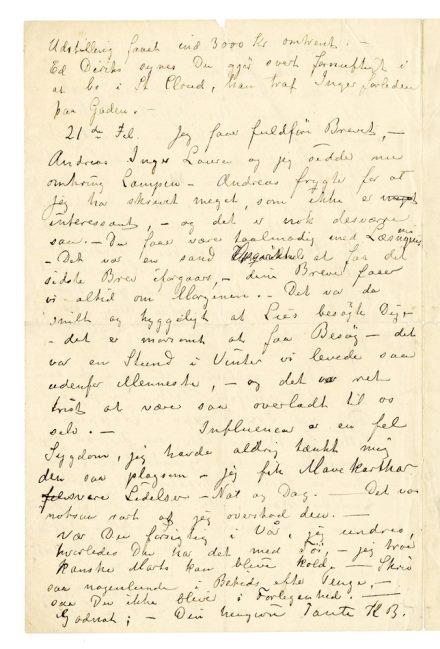 Udstilling faaet ind 3000 Kr omtrent. –
Ed Diriks synes Du gjør svært fornuftigt i
at bo i St Cloud, han traf Inger forleden
paa Gaden. –
21de Feb. Jeg faar fuldføre Brevet, –
Andreas Inger Laura og jeg sidde nu
omkring Lampen – Andreas frygter for at
jeg har skrevet meget, som ikke er
interessant, – og det er nok desværre
saa. – Du faar være taalmodig med Læsningen
– Det var en sand at faa dit
sidste Brev iforgaars, – dine Breve faaer
vi altid om Morgenen. – Det var da
snilt og hyggeligt at Lies besøgte Dig, –
– det er morsomt at faa Besøg – det
var en Stund i Vinter vi levede saa
udenfor Mennesker, – og det var ret
trist at være saa overladt til os
selv. – Influenza er en fel
Sygdom, jeg havde aldrig tænkt mig
den saa plagsom – jeg fik Mavekatarrh
svære Lidelser – Nat og Dag. – Det var
nok saa vart at jeg overstod den. –
Vær Du forsigtig i Vår, jeg undres,
hvorledes Du har det med Tøi, – jeg troer
kanske Marts kan blive kold. – Skriv
saa nogenlunde i Beteds efter Penge, –
saa Du ikke bliver i Forlegenhed. –
Godnat; – Din hengivne Tante K B.